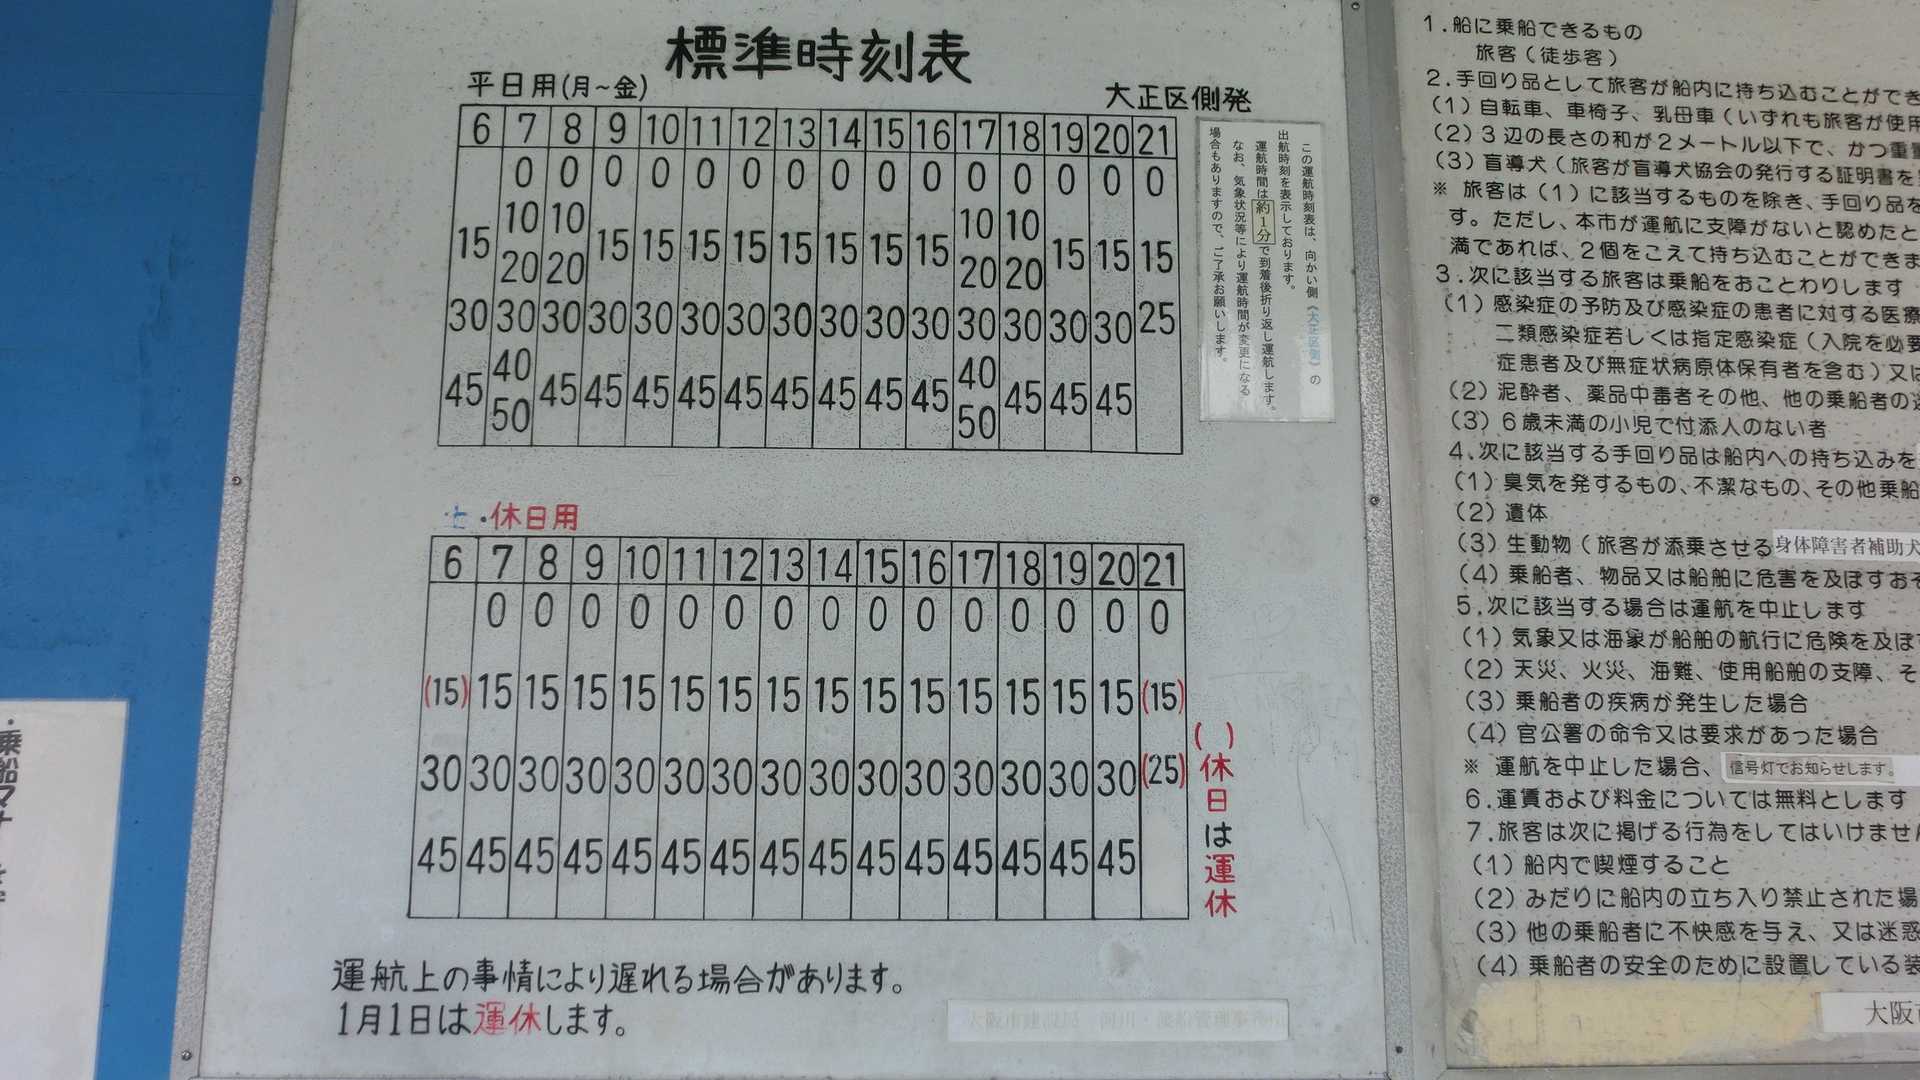 標準時刻表
平日用(月~金)
大正区側発
6 7 8 9 10 11 12 13 14 15 16 17 18 19 20 21
0 0 0 0 0 0 0 0 0 0 0 0 0 0 0
15 10 10 15 15 15 15 15 15 15 15 10 10 15 15 15
20 20 20 20
30 30 30 30 30 30 30 30 30 30 30 30 30 30 30 25
45 40 45 45 45 45 45 45 45 45 45 40 45 45 45
50 50
この運航時刻表は、向かい側《大正区側》の
出航時刻を表示しております。
運航時間は約1分で到着後折り返し運航します。
なお、気象状況等により運航時間が変更になる
場合もありますので、ご了承お願いします。
土・休日用
6 7 8 9 10 11 12 13 14 15 16 17 18 19 20 21
0 0 0 0 0 0 0 0 0 0 0 0 0 0 0
(15) 15 15 15 15 15 15 15 15 15 15 15 15 15 15 (15)
30 30 30 30 30 30 30 30 30 30 30 30 30 30 30 (25)
45 45 45 45 45 45 45 45 45 45 45 45 45 45 45
( )休日は運休
運航上の事情により遅れる場合があります。
1月1日は運休します。
大阪市建設局 河川・渡船管理事務所
1.船に乗船できるもの
旅客(徒歩客)
2.手回り品として旅客が船内に持ち込むことができ
(1)自転車、車椅子、乳母車(いずれも旅客が使用
(2)3辺の長さの和が2メートル以下で、かつ重量
(3)盲導犬(旅客が盲導犬協会の発行する証明書を
※ 旅客は(1)に該当するものを除き、手回り品を
す。ただし、本市が運航に支障がないと認めたと
満であれば、2個をこえて持ち込むことができま
3.次に該当する旅客は乗船をおことわりします
(1)感染症の予防及び感染症の患者に対する医療
二類感染症若しくは指定感染症(入院を必要
症患者及び無症状病原体保有者を含む)又は
(2)泥酔者、薬品中毒者その他、他の乗船者の迷
(3)6歳未満の小児で付添人のない者
4.次に該当する手回り品は船内への持ち込みを
(1)臭気を発するもの、不潔なもの、その他乗船
(2)遺体
(3)生動物(旅客が添乗させる身体障害者補助犬
(4)乗船者、物品又は船舶に危害を及ぼすおそ
5.次に該当する場合は運航を中止します
(1)気象又は海象が船舶の航行に危険を及ぼす
(2)天災、火災、海難、使用船舶の支障、そ
(3)乗船者の疾病が発生した場合
(4)官公署の命令又は要求があった場合
※ 運航を中止した場合、信号灯でお知らせします。
6.運賃および料金については無料とします
7.旅客は次に掲げる行為をしてはいけません
(1)船内で喫煙すること
(2)みだりに船内の立ち入り禁止された場
(3)他の乗船者に不快感を与え、又は迷惑
(4)乗船者の安全のために設置している装
大阪市
・乗船マナー